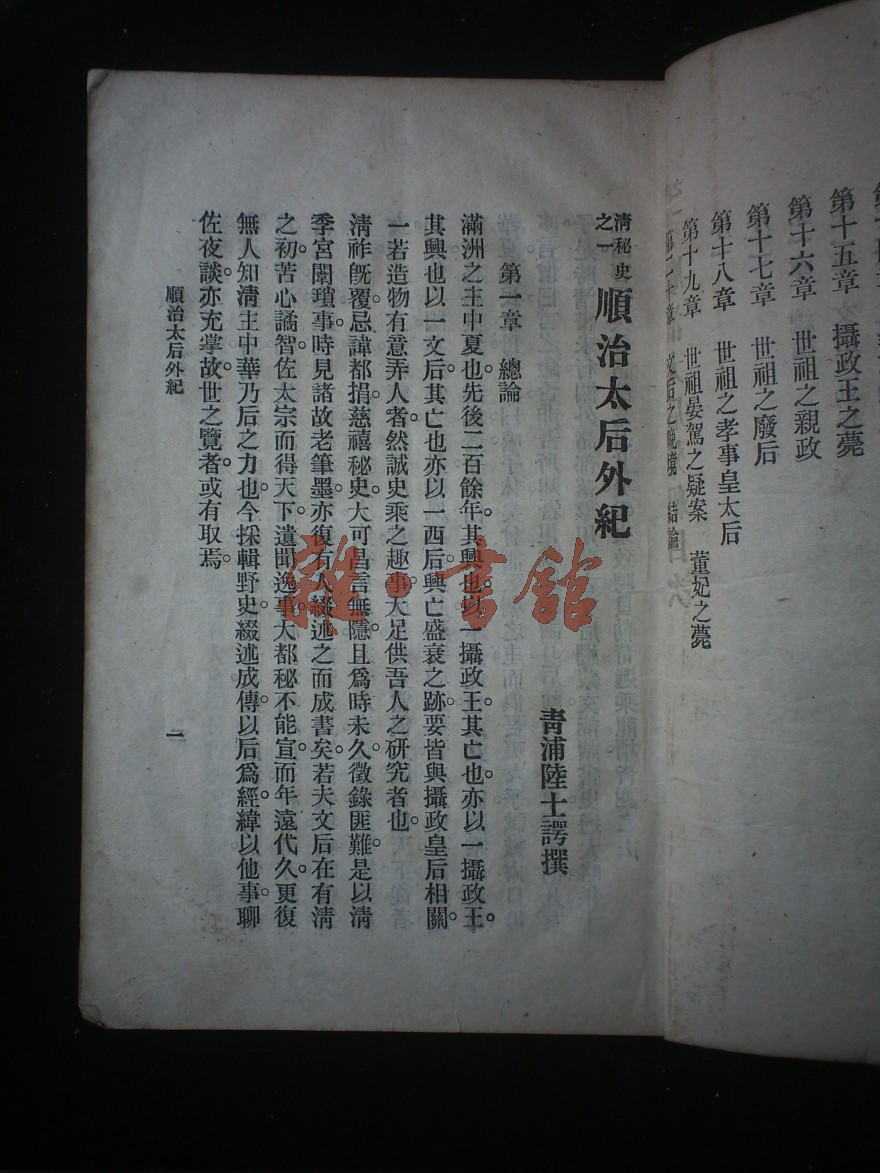 第十五章　攝政王之薨
第十六章　世祖之親政
第十七章　世祖之廢后
第十八章　世祖之孝事皇太后
第十九章　世祖晏駕之疑案　董妃之薨
第二十章　文后之晚境　結論
清秘史之一　順治太后外紀
青浦陸士諤撰
第一章　總論
滿洲之主中夏也。先後二百餘年。其興也。以一攝政王。其亡也。亦以一攝政王。
其興也以一文后。其亡也亦以一西后。興亡盛衰之跡。要皆與攝政皇后相關。
一若造物有意弄人者。然誠史乘之趣事。大足供吾人之研究者也。
清祚旣覆。忌諱都捐。慈禧秘史。大可昌言無隱。且爲時未久。徵錄匪難。是以清
季宮闈瑣事。時見諸故老筆墨。亦復有人綴述之而成書矣。若夫文后在有清
之初。苦心譎智。佐太宗而得天下。遺聞逸事。大都秘不能宣。而年遠代久。更復
無人知清主中華乃后之力也。今採輯野史。綴述成傳。以后爲經。緯以他事。聊
佐夜談。亦充掌故。世之覽者。或有取焉。
順治太后外紀
一
雜·書館